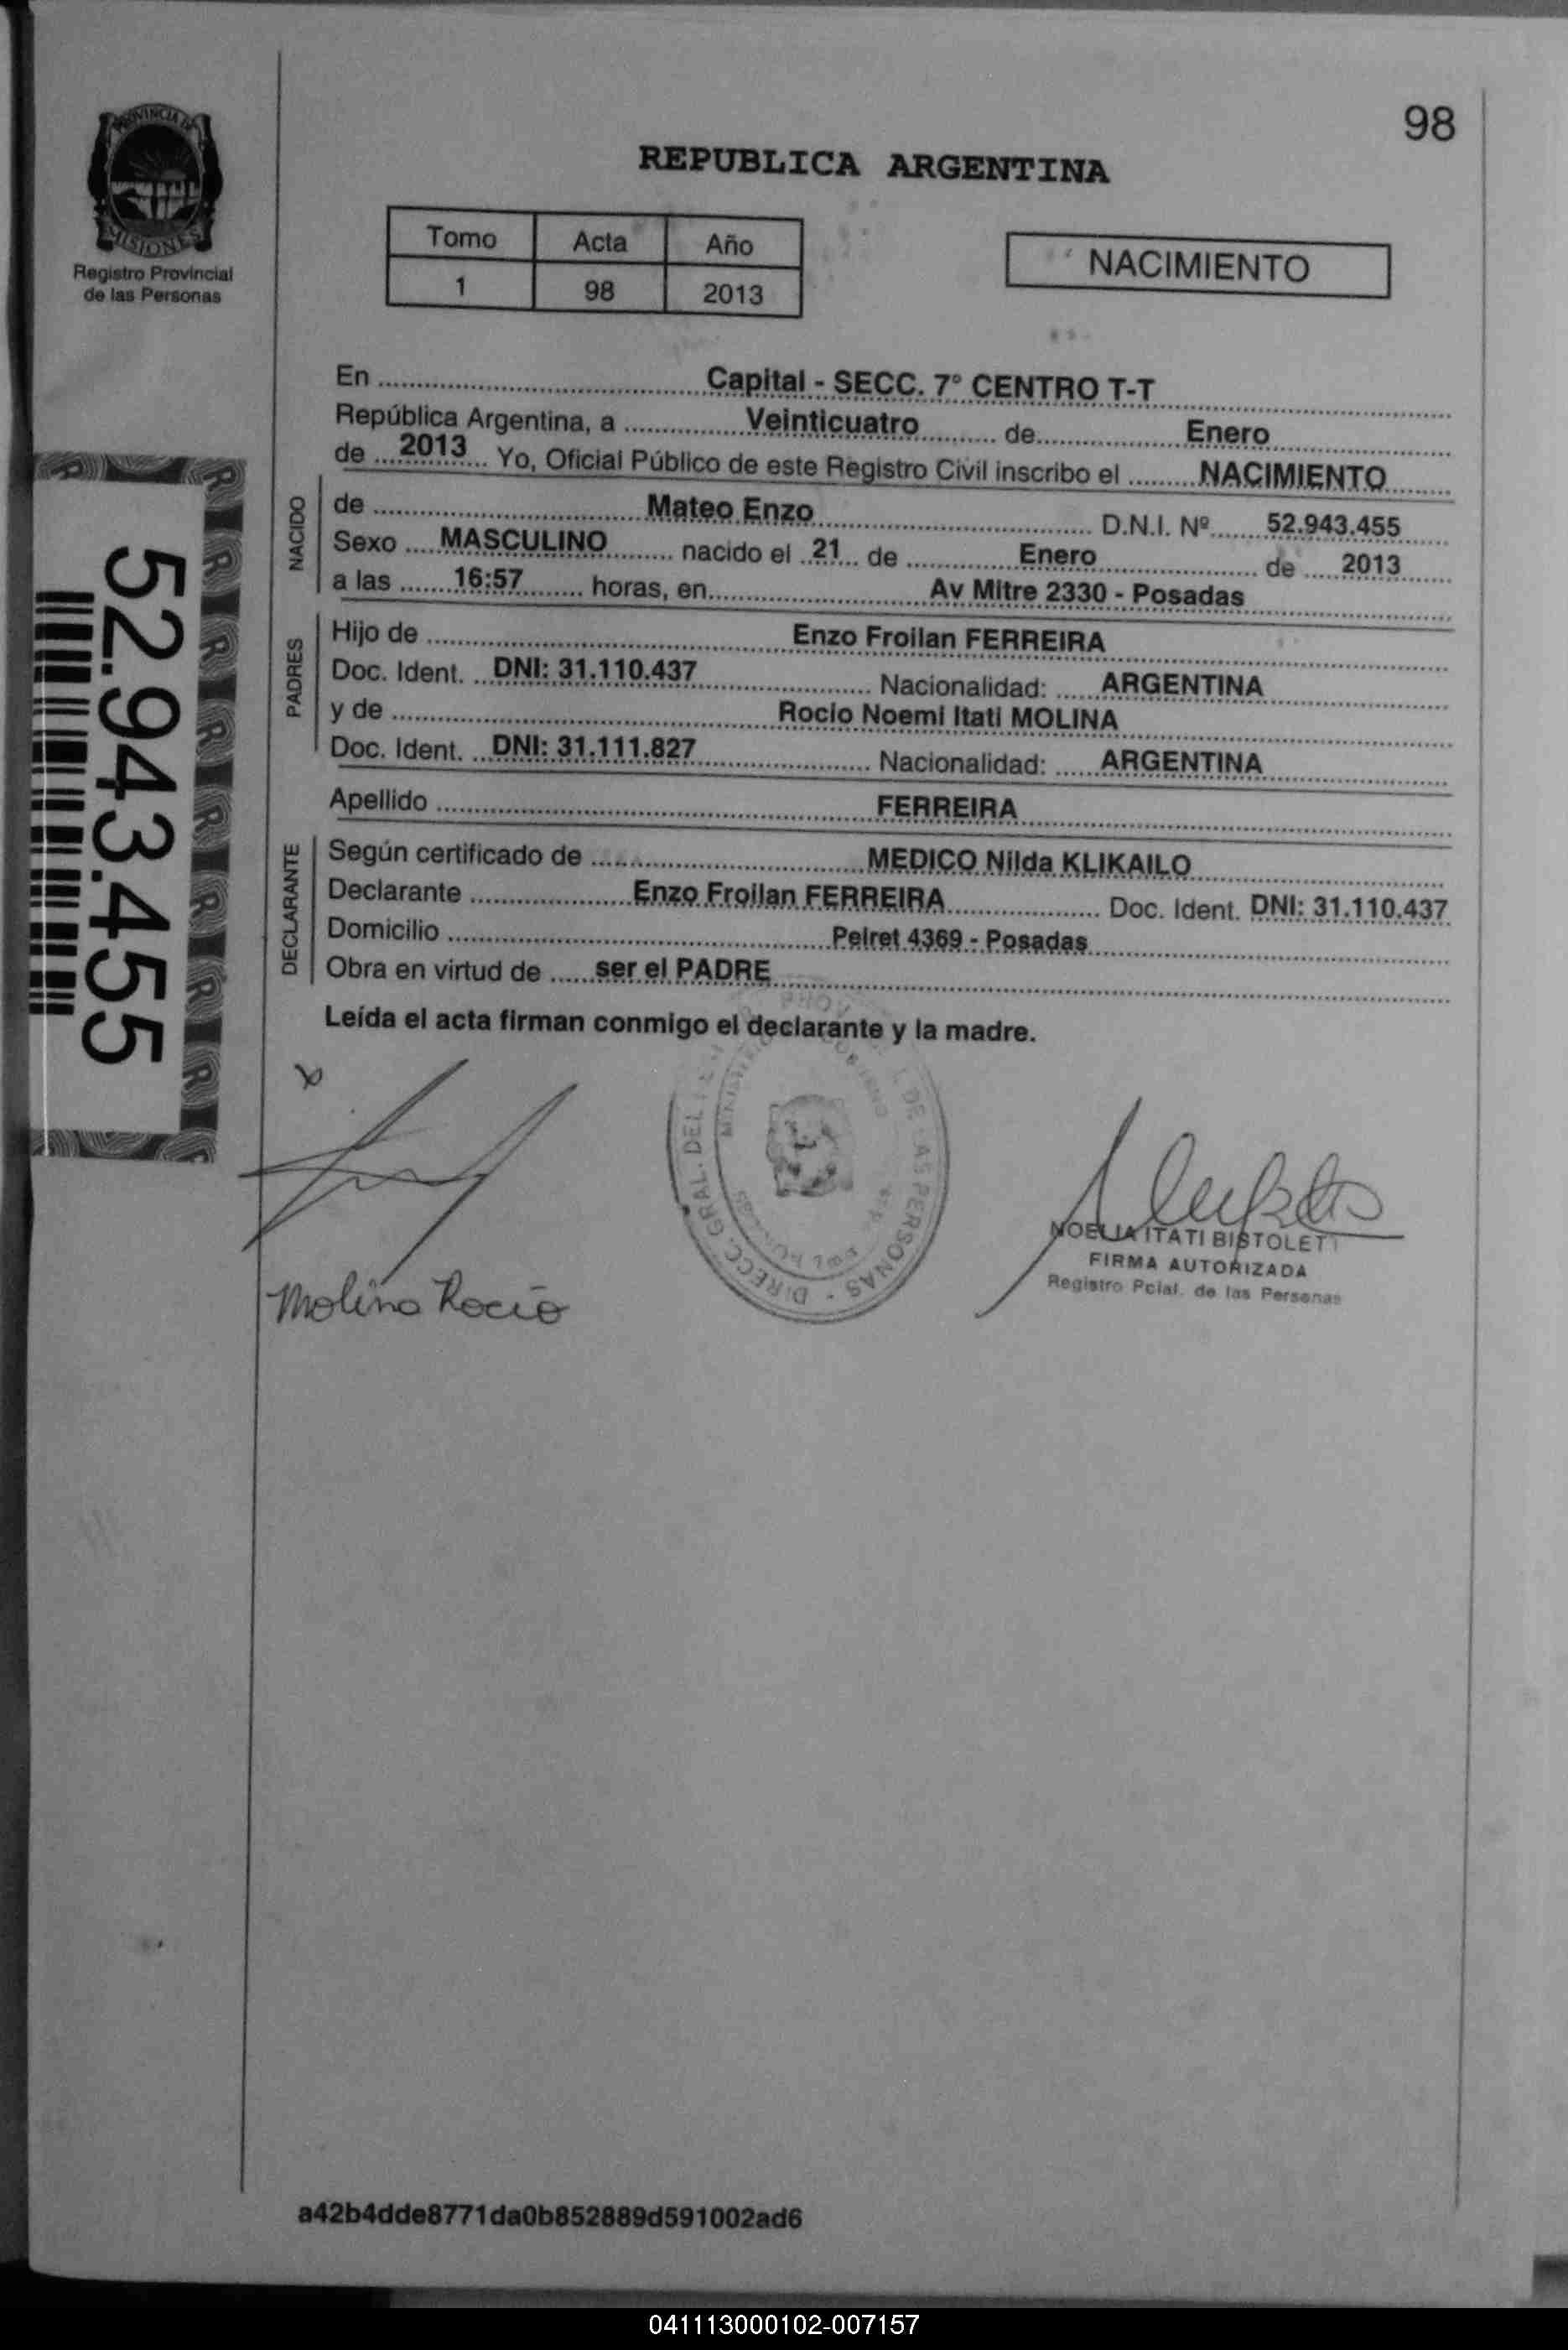 98
PROVINCIA DE
MISIONES
Registro Provincial
de las Personas
REPUBLICA ARGENTINA
Tomo Acta Año
1 98 2013
NACIMIENTO
En Capital - SECC. 7° CENTRO T-T
República Argentina, a Veinticuatro de Enero
de 2013 Yo, Oficial Público de este Registro Civil inscribo el NACIMIENTO
NACIDO
de Mateo Enzo D.N.I. Nº 52.943.455
Sexo MASCULINO nacido el 21 de Enero de 2013
a las 16:57 horas, en Av Mitre 2330 - Posadas
PADRES
Hijo de Enzo Froilan FERREIRA
Doc. Ident. DNI: 31.110.437 Nacionalidad: ARGENTINA
y de Rocio Noemi Itati MOLINA
Doc. Ident. DNI: 31.111.827 Nacionalidad: ARGENTINA
Apellido FERREIRA
DECLARANTE
Según certificado de MEDICO Nilda KLIKAILO
Declarante Enzo Froilan FERREIRA Doc. Ident. DNI: 31.110.437
Domicilio Peiret 4369 - Posadas
Obra en virtud de ser el PADRE
Leída el acta firman conmigo el declarante y la madre.
52.943.455
DIRECC. GRAL. DEL PERSONAS
Molina Rocio
NOELIA ITATI BISTOLETTI
FIRMA AUTORIZADA
Registro Pcial. de las Personas
a42b4dde8771da0b852889d591002ad6
041113000102-007157